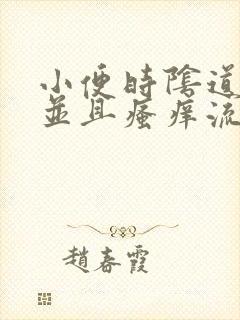 小便時陰道
並且瘙癢流
趙春霞